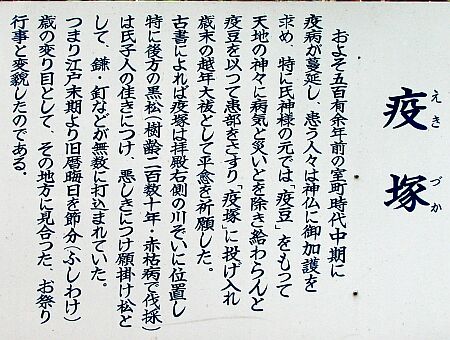 疫塚
えきづか
およそ五百有余年前の室町時代中期に
疫病が蔓延し、患う人々は神仏に御加護を
求め、特に氏神様の元では「疫豆」をもって
天地の神々に病気と災いとを除き給わらんと
疫豆を以つて患部をさすり「疫塚」に投げ入れ
歳末の越年大祓として平癒を祈願した。
古書によれば疫塚は拝殿右側の川ぞいに位置し
特に後方の黒松(樹齢二百数十年・赤枯病で伐採)
は氏子人の住きにつけ、悪しきにつけ願掛け松と
して、鎌・釘などが無数に打込まれていた。
つまり江戸末期より旧暦晦日を節分(ふしわけ)
歳の変り目として、その地方に見合った、お祭り
行事と変貌したのである。